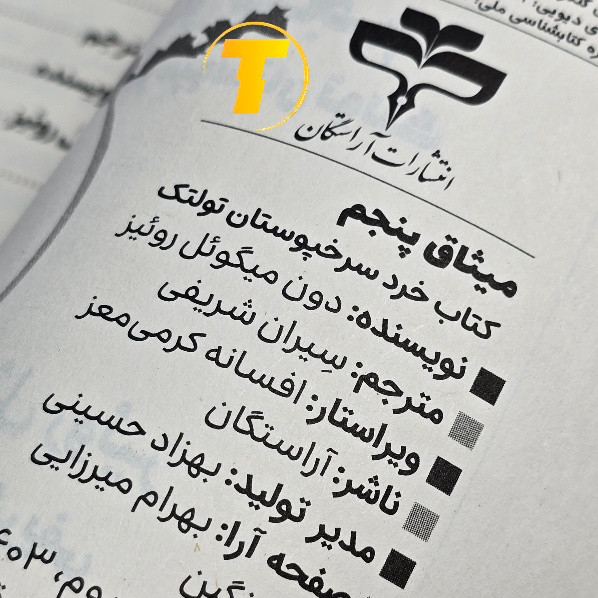 ره کتابشناسی ملی:
T
انتشارات آراستگان
میثاق پنجم
کتاب خرد سرخپوستان تولتک
نویسنده: دون میگوئل روئیز
مترجم: سیران شریفی
ویراستار: افسانه کرمی‌معز
ناشر: آراستگان
مدیر تولید: بهزاد حسینی
صفحه آرا: بهرام میرزایی